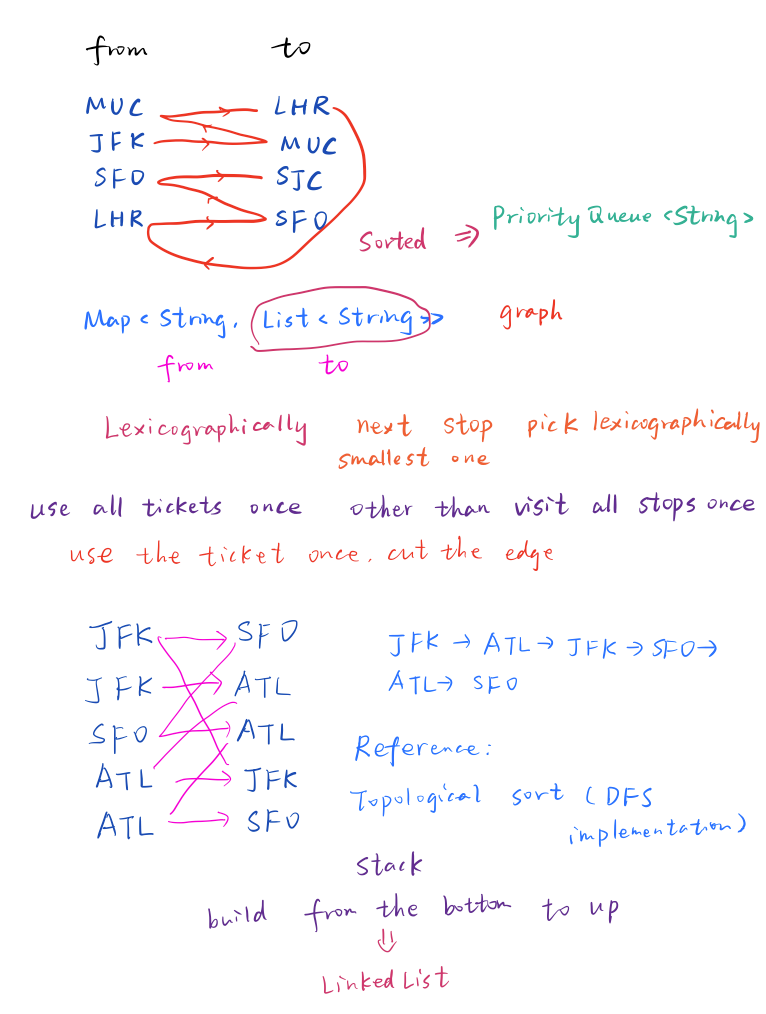 from to
MUC LHR
JFK MUC
SFO SJC
LHR SFO
Sorted ⇒ Priority Queue <String>
Map < String, List < String >> graph
from to
Lexicographically next stop pick lexicographically
smallest one
use all tickets once other than visit all stops once
use the ticket once, cut the edge
JFK SFO
JFK ATL
SFO ATL
ATL JFK
ATL SFO
JFK → ATL → JFK → SFO →
ATL → SFO
Reference:
Topological sort (DFS
implementation)
Stack
build from the bottom to up
⇓
Linked List